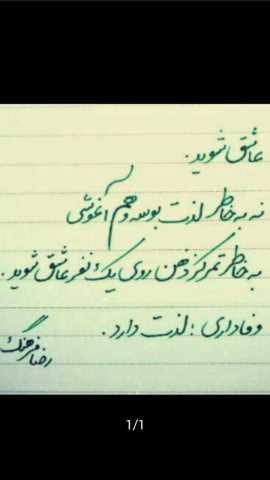 عاشق شوید.
نه به خاطر لذت بوسه و هم آغوشی
به خاطر تمرکز ذهن روی یک نفر عاشق شوید.
وفاداری؛ لذت دارد.
رضا فرهنگ
1/1